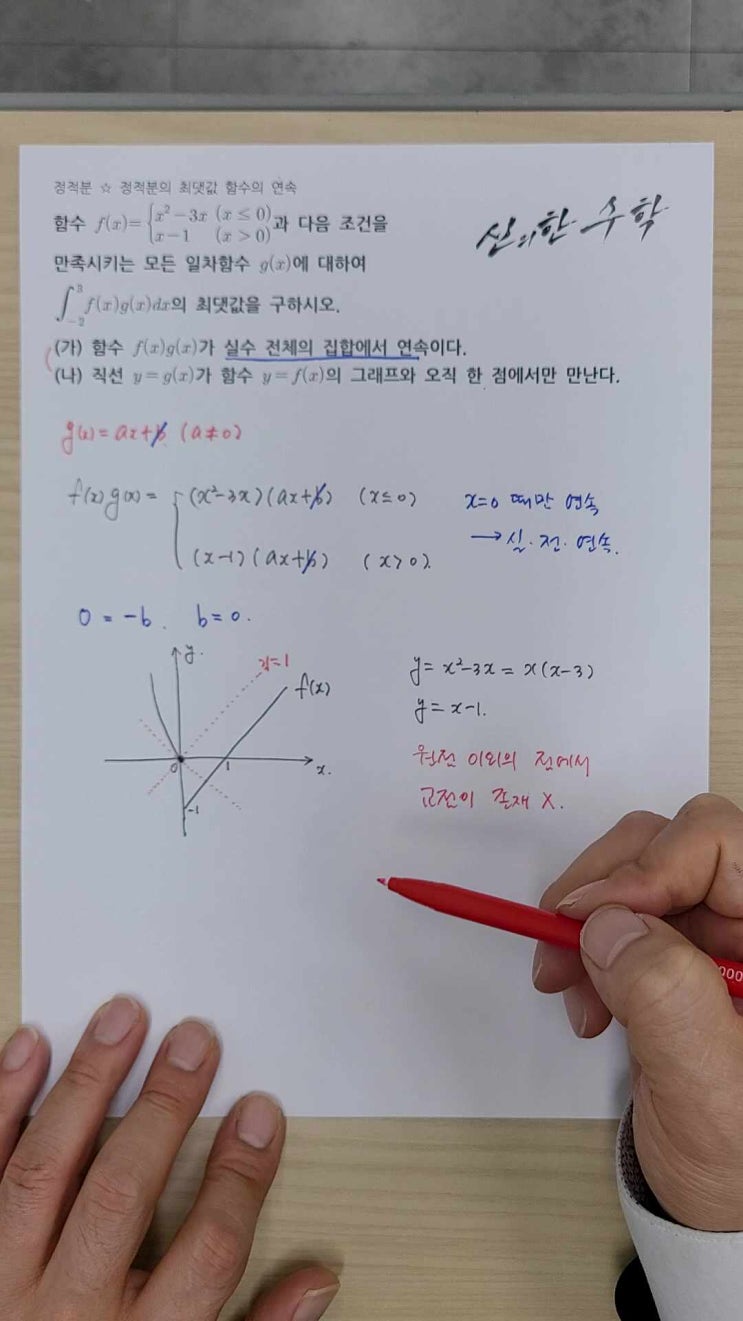 정적분 ☆ 정적분의 최댓값 함수의 연속
함수 f(x)={x²-3x (x≤0) x-1 (x>0)과 다음 조건을
신의한 수학
만족시키는 모든 일차함수 g(x)에 대하여
∫₋₂³ f(x)g(x)dx의 최댓값을 구하시오.
(가) 함수 f(x)g(x)가 실수 전체의 집합에서 연속이다.
(나) 직선 y=g(x)가 함수 y=f(x)의 그래프와 오직 한 점에서만 만난다.
g(x)=ax+b (a≠0)
f(x)g(x)= { (x²-3x)(ax+b) (x≤0)
(x-1)(ax+b) (x>0).
x=0 때만 연속
→ 실·전·연속.
0 = -b. b=0.
y.
y=1
f(x)
0
1
x.
-1
y= x²-3x = x(x-3)
y= x-1.
원점 이외의 점에서
교점이 존재 X.
000